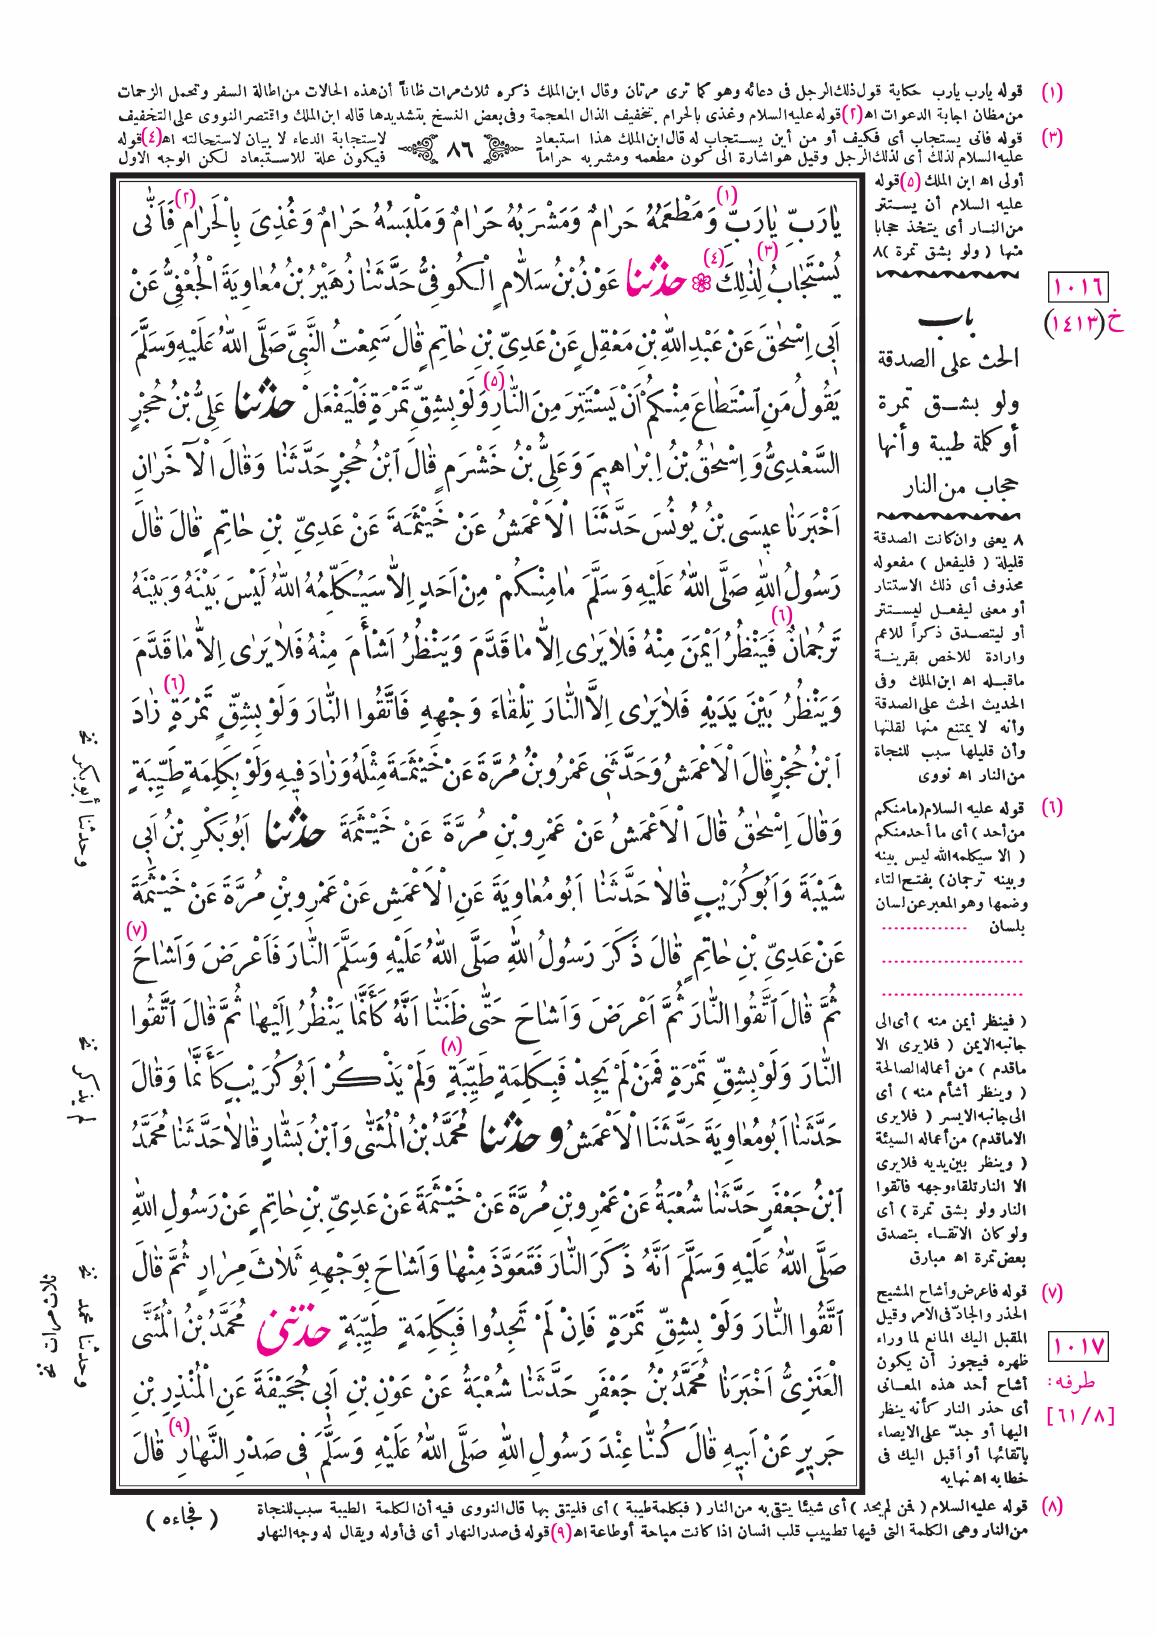 (١) قوله يارب يارب حكاية قول ذلك الرجل فى دعائه وهو كما ترى مرتان وقال ابن الملك ذكره ثلاث مرات ظاناً أن هذه الحالات من اطالة السفر وتحمل الزحمات
من مظان اجابة الدعوات اه (٢) قوله عليه السلام وغذى بالحرام بتخفيف الذال المعجمة وفى بعض النسخ بتشديدها قاله ابن الملك واقتصر النووى على التخفيف
(٣) قوله فانى يستجاب أى فكيف أو من أين يستجاب له قال ابن الملك هذا استبعاد لاستجابة الدعاء لا بيان لاستحالته اه (٤) قوله
عليه السلام لذلك أى لذلك الرجل وقيل هو اشارة الى كون مطعمه ومشربه حراماً فيكون علة للاستبعاد لكن الوجه الاول
٨٦
أولى اه ابن الملك (٥) قوله
عليه السلام أن يستتر
من النار أى يتخذ حجابا
منها ( ولو بشق تمرة )٨
باب
الحث على الصدقة
ولو بشق تمرة
أو كلمة طيبة وأنها
حجاب من النار
٨ يعنى وان كانت الصدقة
قليلة ( فليفعل ) مفعوله
محذوف أى ذلك الاستتار
أو معنى ليفعل ليستتر
أو ليتصدق ذكراً للاعم
وارادة للاخص بقرينة
ماقبله اه ابن الملك وفى
الحديث الحث على الصدقة
وأنه لا يمتنع منها لقلتها
وأن قليلها سبب للنجاة
من النار اه نووى
(٦) قوله عليه السلام (مامنكم
من أحد ) أى ما أحد منكم
( الا سيكلمه الله ليس بينه
وبينه ترجمان) بفتح التاء
وضمها وهو المعبر عن لسان
بلسان ..............
( فينظر أيمن منه ) أى الى
جانبه الايمن ( فلايرى الا
ماقدم ) من أعماله الصالحة
( وينظر أشأم منه ) أى
الى جانبه الايسر ( فلايرى
الا ماقدم) من أعماله السيئة
( وينظر بين يديه فلايرى
الا النار تلقاء وجهه فاتقوا
النار ولو بشق تمرة ) أى
ولو كان الاتقاء بتصدق
بعض تمرة اه مبارق
(٧) قوله فاعرض وأشاح المشيح
الحذر والجادّ فى الامر وقيل
المقبل اليك المانع لما وراء
ظهره فيجوز أن يكون
أشاح أحد هذه المعانى
أى حذر النار كأنه ينظر
اليها أو جدّ على الايصاء
باتقائها أو أقبل اليك فى
خطابه اه نهايه
١٠١٦
خ (١٤١٣)
١٠١٧
طرفه:
[٦١/٨]
يٰارَبِّ يٰارَبِّ (١) وَمَطْعَمُهُ حَرٰامٌ وَمَشْرَبُهُ حَرٰامٌ وَمَلْبَسُهُ حَرٰامٌ وَغُذِىَ بِالْحَرٰامِ (٢) فَاَنّٰى
يُسْتَجٰابُ (٣) لِذٰلِكَ (٤) حدثنا عَوْنُ بْنُ سَلّٰامٍ الْكُوفِىُّ حَدَّثَنٰا زُهَيْرُ بْنُ مُعٰاوِيَةَ الْجُعْفِىُّ عَنْ
اَبِى اِسْحٰقَ عَنْ عَبْدِ اللّٰهِ بْنِ مَعْقِلٍ عَنْ عَدِىِّ بْنِ حٰاتِمٍ قٰالَ سَمِعْتُ النَّبِىَّ صَلَّى اللّٰهُ عَلَيْهِ وَسَلَّمَ
يَقُولُ مَنِ اسْتَطٰاعَ مِنْكُمْ اَنْ يَسْتَتِرَ مِنَ النّٰارِ (٥) وَلَوْ بِشِقِّ تَمْرَةٍ فَلْيَفْعَلْ حدثنا عَلِىُّ بْنُ حُجْرٍ
السَّعْدِىُّ وَ اِسْحٰقُ بْنُ اِبْرٰاهِيمَ وَعَلِىُّ بْنُ خَشْرَمٍ قٰالَ ابْنُ حُجْرٍ حَدَّثَنٰا وَقٰالَ الْآخَرٰانِ
اَخْبَرَنٰا عِيسَى بْنُ يُونُسَ حَدَّثَنَا الْاَعْمَشُ عَنْ خَيْثَمَةَ عَنْ عَدِىِّ بْنِ حٰاتِمٍ قٰالَ قٰالَ
رَسُولُ اللّٰهِ صَلَّى اللّٰهُ عَلَيْهِ وَسَلَّمَ مٰامِنْكُمْ مِنْ اَحَدٍ اِلّٰا سَيُكَلِّمُهُ اللّٰهُ لَيْسَ بَيْنَهُ وَبَيْنَهُ
تَرْجُمٰانٌ (٦) فَيَنْظُرُ اَيْمَنَ مِنْهُ فَلٰا يَرٰى اِلّٰا مٰا قَدَّمَ وَيَنْظُرُ اَشْأَمَ مِنْهُ فَلٰا يَرٰى اِلّٰا مٰا قَدَّمَ
وَيَنْظُرُ بَيْنَ يَدَيْهِ فَلٰا يَرٰى اِلَّا النّٰارَ تِلْقٰاءَ وَجْهِهِ فَاتَّقُوا النّٰارَ وَلَوْ بِشِقِّ تَمْرَةٍ (٦) زٰادَ
ابْنُ حُجْرٍ قٰالَ الْاَعْمَشُ وَحَدَّثَنِى عَمْرُو بْنُ مُرَّةَ عَنْ خَيْثَمَةَ مِثْلَهُ وَزٰادَ فِيهِ وَلَوْ بِكَلِمَةٍ طَيِّبَةٍ
وَقٰالَ اِسْحٰقُ قٰالَ الْاَعْمَشُ عَنْ عَمْرِو بْنِ مُرَّةَ عَنْ خَيْثَمَةَ حدثنا اَبُو بَكْرِ بْنُ اَبِى
شَيْبَةَ وَاَبُو كُرَيْبٍ قٰالٰا حَدَّثَنٰا اَبُو مُعٰاوِيَةَ عَنِ الْاَعْمَشِ عَنْ عَمْرِو بْنِ مُرَّةَ عَنْ خَيْثَمَةَ
عَنْ عَدِىِّ بْنِ حٰاتِمٍ قٰالَ ذَكَرَ رَسُولُ اللّٰهِ صَلَّى اللّٰهُ عَلَيْهِ وَسَلَّمَ النّٰارَ فَاَعْرَضَ وَاَشٰاحَ (٧)
ثُمَّ قٰالَ اتَّقُوا النّٰارَ ثُمَّ اَعْرَضَ وَاَشٰاحَ حَتّٰى ظَنَنّٰا اَنَّهُ كَأَنَّمٰا يَنْظُرُ اِلَيْهٰا ثُمَّ قٰالَ اتَّقُوا
النّٰارَ وَلَوْ بِشِقِّ تَمْرَةٍ فَمَنْ لَمْ يَجِدْ فَبِكَلِمَةٍ طَيِّبَةٍ (٨) وَلَمْ يَذْكُرْ اَبُو كُرَيْبٍ كَأَنَّمٰا وَقٰالَ
حَدَّثَنٰا اَبُو مُعٰاوِيَةَ حَدَّثَنَا الْاَعْمَشُ و حدثنا مُحَمَّدُ بْنُ الْمُثَنّٰى وَابْنُ بَشّٰارٍ قٰالٰا حَدَّثَنٰا مُحَمَّدُ
ابْنُ جَعْفَرٍ حَدَّثَنٰا شُعْبَةُ عَنْ عَمْرِو بْنِ مُرَّةَ عَنْ خَيْثَمَةَ عَنْ عَدِىِّ بْنِ حٰاتِمٍ عَنْ رَسُولِ اللّٰهِ
صَلَّى اللّٰهُ عَلَيْهِ وَسَلَّمَ اَنَّهُ ذَكَرَ النّٰارَ فَتَعَوَّذَ مِنْهٰا وَاَشٰاحَ بِوَجْهِهِ ثَلٰاثَ مِرٰارٍ ثُمَّ قٰالَ
اتَّقُوا النّٰارَ وَلَوْ بِشِقِّ تَمْرَةٍ فَاِنْ لَمْ تَجِدُوا فَبِكَلِمَةٍ طَيِّبَةٍ حدثنى مُحَمَّدُ بْنُ الْمُثَنَّى
الْعَنَزِىُّ اَخْبَرَنٰا مُحَمَّدُ بْنُ جَعْفَرٍ حَدَّثَنٰا شُعْبَةُ عَنْ عَوْنِ بْنِ اَبِى جُحَيْفَةَ عَنِ الْمُنْذِرِ بْنِ
جَرِيرٍ عَنْ اَبِيهِ قٰالَ كُنّٰا عِنْدَ رَسُولِ اللّٰهِ صَلَّى اللّٰهُ عَلَيْهِ وَسَلَّمَ فِى صَدْرِ النَّهٰارِ (٩) قٰالَ
وحدثنا أبوبكر نخ
لم يذكر نخ
وحدثنا محمد نخ
ثلاث مرات نخ
(٨) قوله عليه السلام ( فمن لم يجد ) أى شيئا يتقى به من النار ( فبكلمة طيبة ) أى فليتق بها قال النووى فيه أن الكلمة الطيبة سبب للنجاة
من النار وهى الكلمة التى فيها تطييب قلب انسان اذا كانت مباحة أو طاعة اه (٩) قوله فى صدر النهار أى فى أوله ويقال له وجه النهار
( فجاءه )